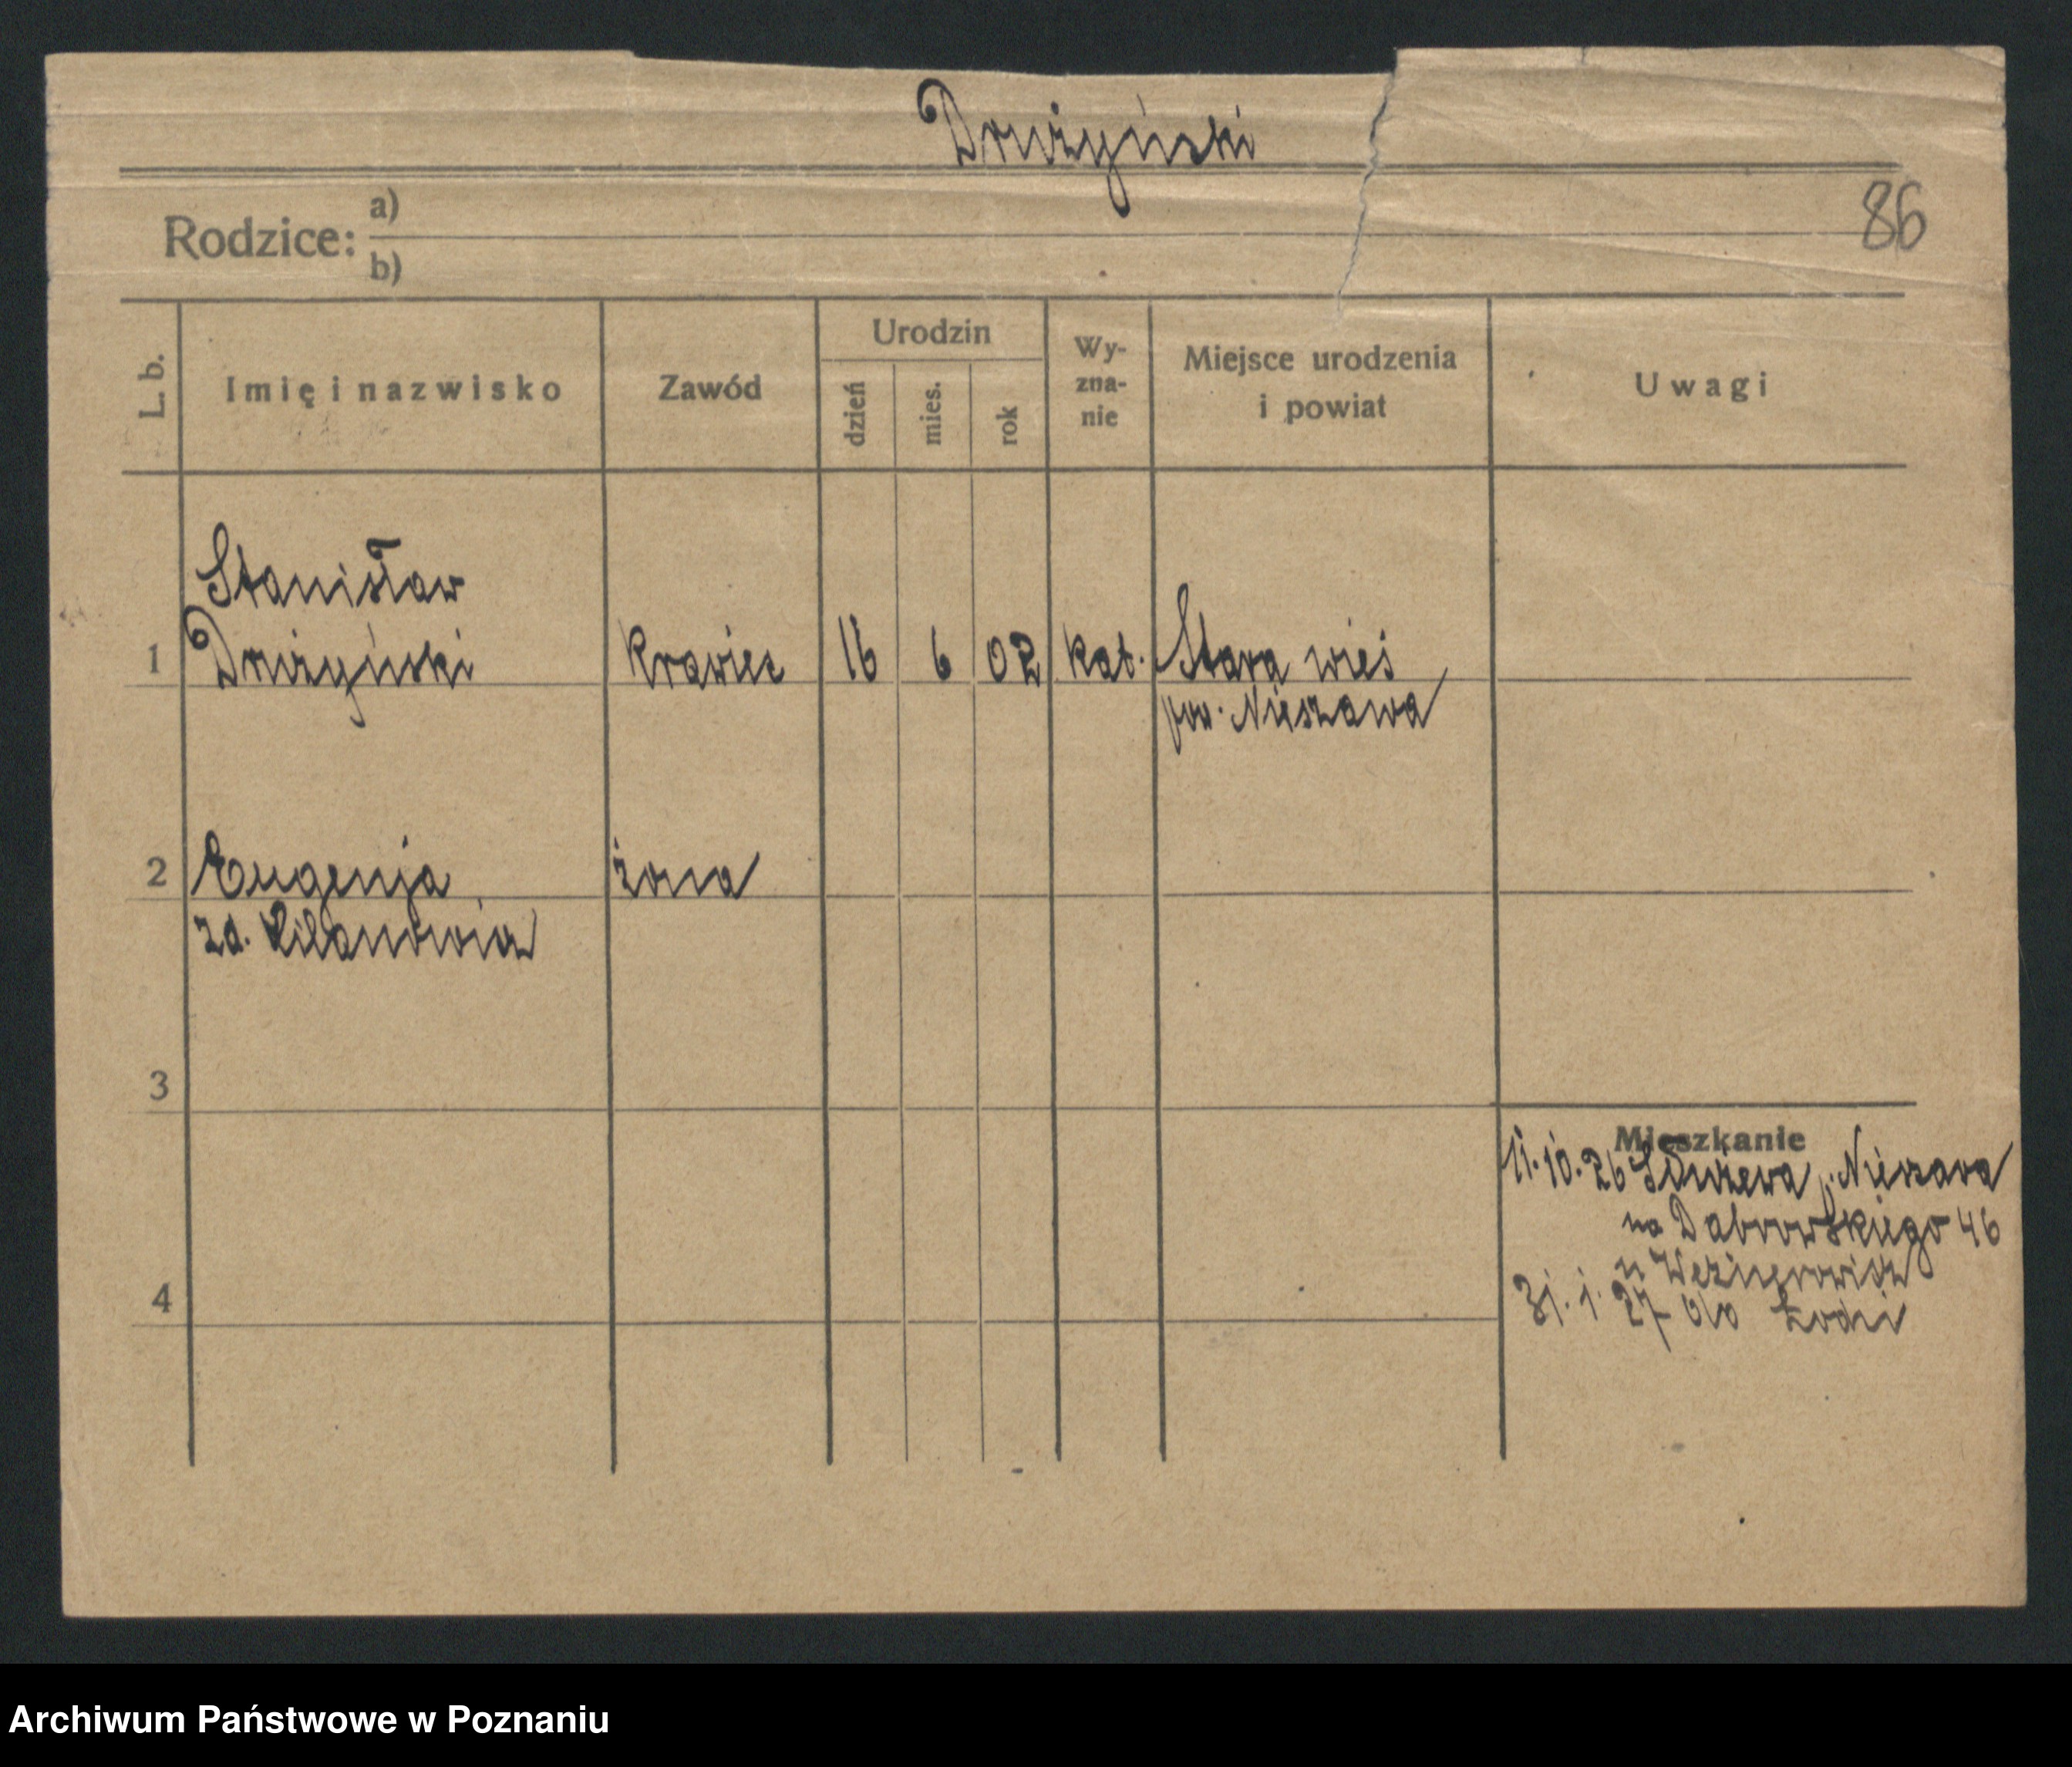 Drużyński
86
Rodzice: a)
b)
L. b.
Imię i nazwisko
Zawód
Urodzin
dzień
mies.
rok
Wy-
zna-
nie
Miejsce urodzenia
i powiat
Uwagi
Stanisław
1 Drużyński krawiec 16 6 02 kat. Stara wieś
pow. Nieszawa
2 Eugenja żona
zd.
3
Mieszkanie
11.10.26 Służewa p. Nieszawa
na Dąbrowskiego 46
u
4
31.1.27 do Łodzi
Archiwum Państwowe w Poznaniu